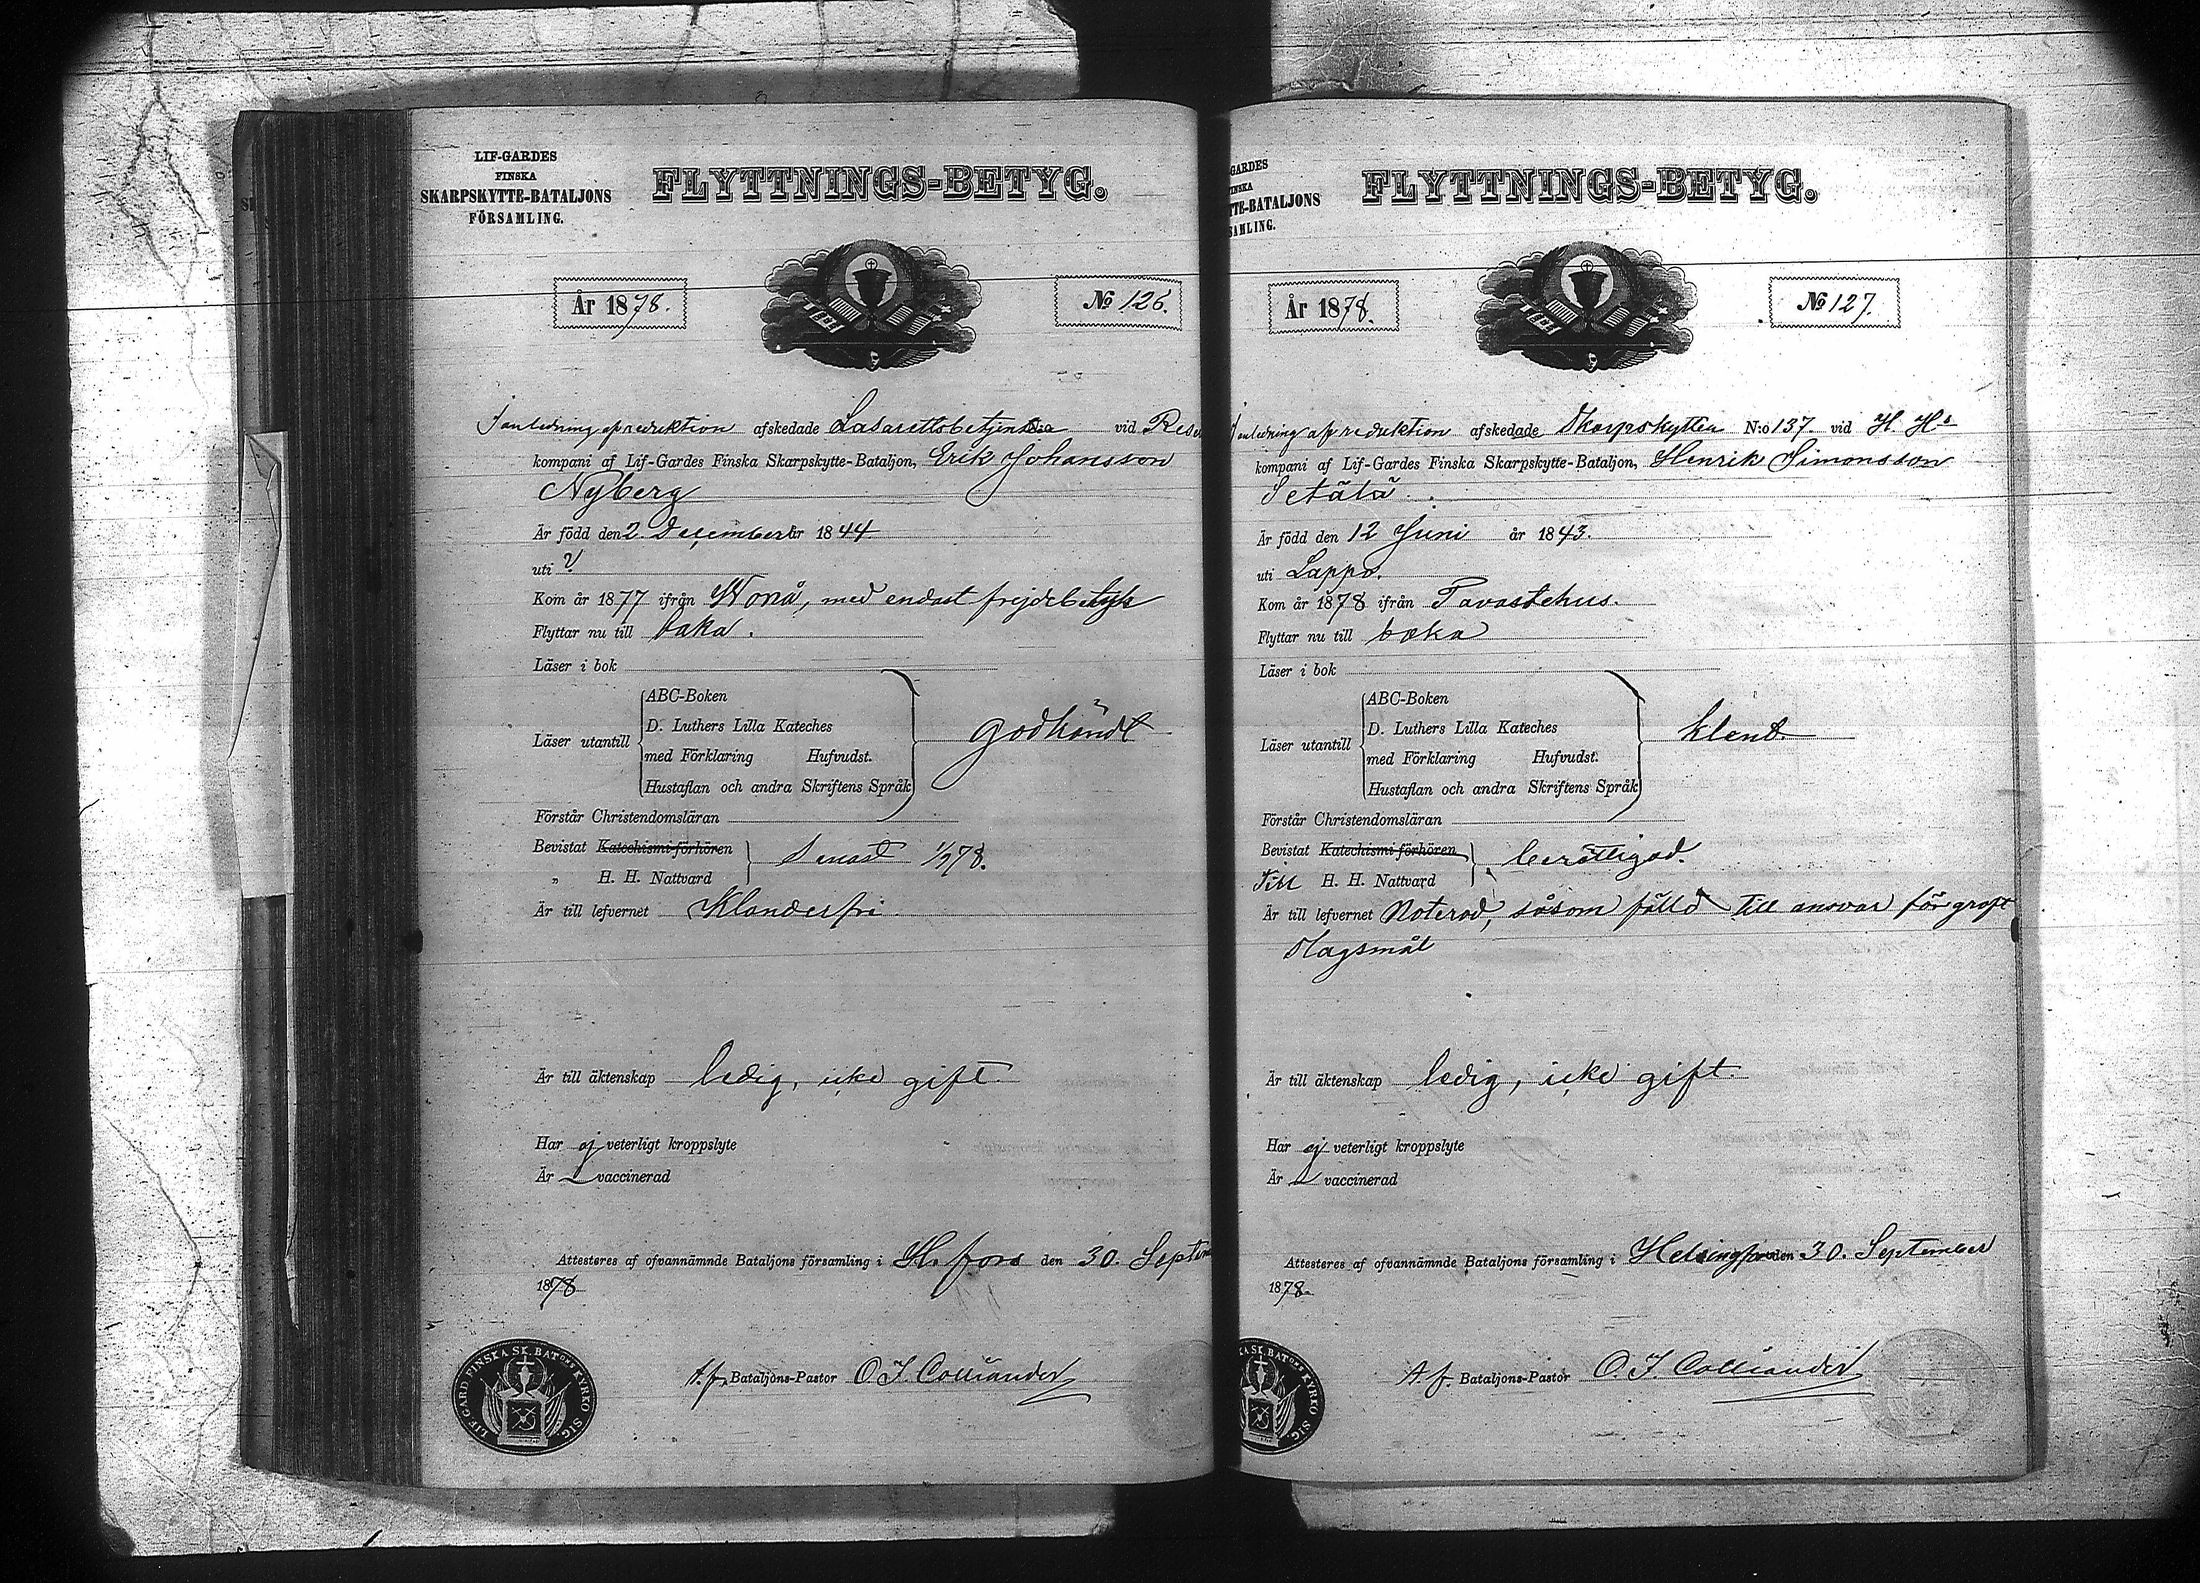 LIF-GARDES
FINSKA
SKARPSKYTTE-BATALJONS
FÖRSAMLING.
FLYTTNINGS-BETYG.
År 1878.
№ 126.
I anledning af reduktion afskedade Lasarettsbetjenten vid Rese
kompani af Lif-Gardes Finska Skarpskytte-Bataljon, Erik Johansson
Nyberg
Är född den 2 December år 1844
uti ?
Kom år 1877 ifrån Wånå, med endast frejdebetyg
Flyttar nu till baka.
Läser i bok
Läser utantill
ABC-Boken
D. Luthers Lilla Kateches
med Förklaring Hufvudst.
Hustaflan och andra Skriftens Språk
godkändt
Förstår Christendomsläran
Bevistat Katechismi-förhören
„ H. H. Nattvard
senast 1/9 78.
Är till lefvernet Klanderfri.
Är till äktenskap ledig, icke gift.
Har ej veterligt kroppslyte
Är vaccinerad
Attesteres af ofvannämnde Bataljons församling i H.fors den 30. Septem
1878
LIF GARD FINSKA SK. BATONS KYRKO SIG.
A.f. Bataljons-Pastor O. I. Colliander
GARDES
INSKA
TTE-BATALJONS
SAMLING.
FLYTTNINGS-BETYG.
År 1878.
№ 127.
I anledning af reduktion afskedade Skarpskytten N:o 137. vid H. H:s
kompani af Lif-Gardes Finska Skarpskytte-Bataljon, Henrik Simonsson
Setälä.
Är född den 12 Juni år 1843.
uti Lappo.
Kom år 1878 ifrån Tavastehus.
Flyttar nu till baka
Läser i bok
Läser utantill
ABC-Boken
D. Luthers Lilla Kateches
med Förklaring Hufvudst.
Hustaflan och andra Skriftens Språk
klent.
Förstår Christendomsläran
Bevistat Katechismi-förhören
Till H. H. Nattvard
berättigad.
Är till lefvernet Noterad, såsom fälld till ansvar för groft
slagsmål
Är till äktenskap ledig, icke gift.
Har ej veterligt kroppslyte
Är vaccinerad
Attesteres af ofvannämnde Bataljons församling i Helsingfors den 30. September
1878.
KA SK. BATONS KYRKO SIG.
A.f. Bataljons-Pastor O. I. Colliander